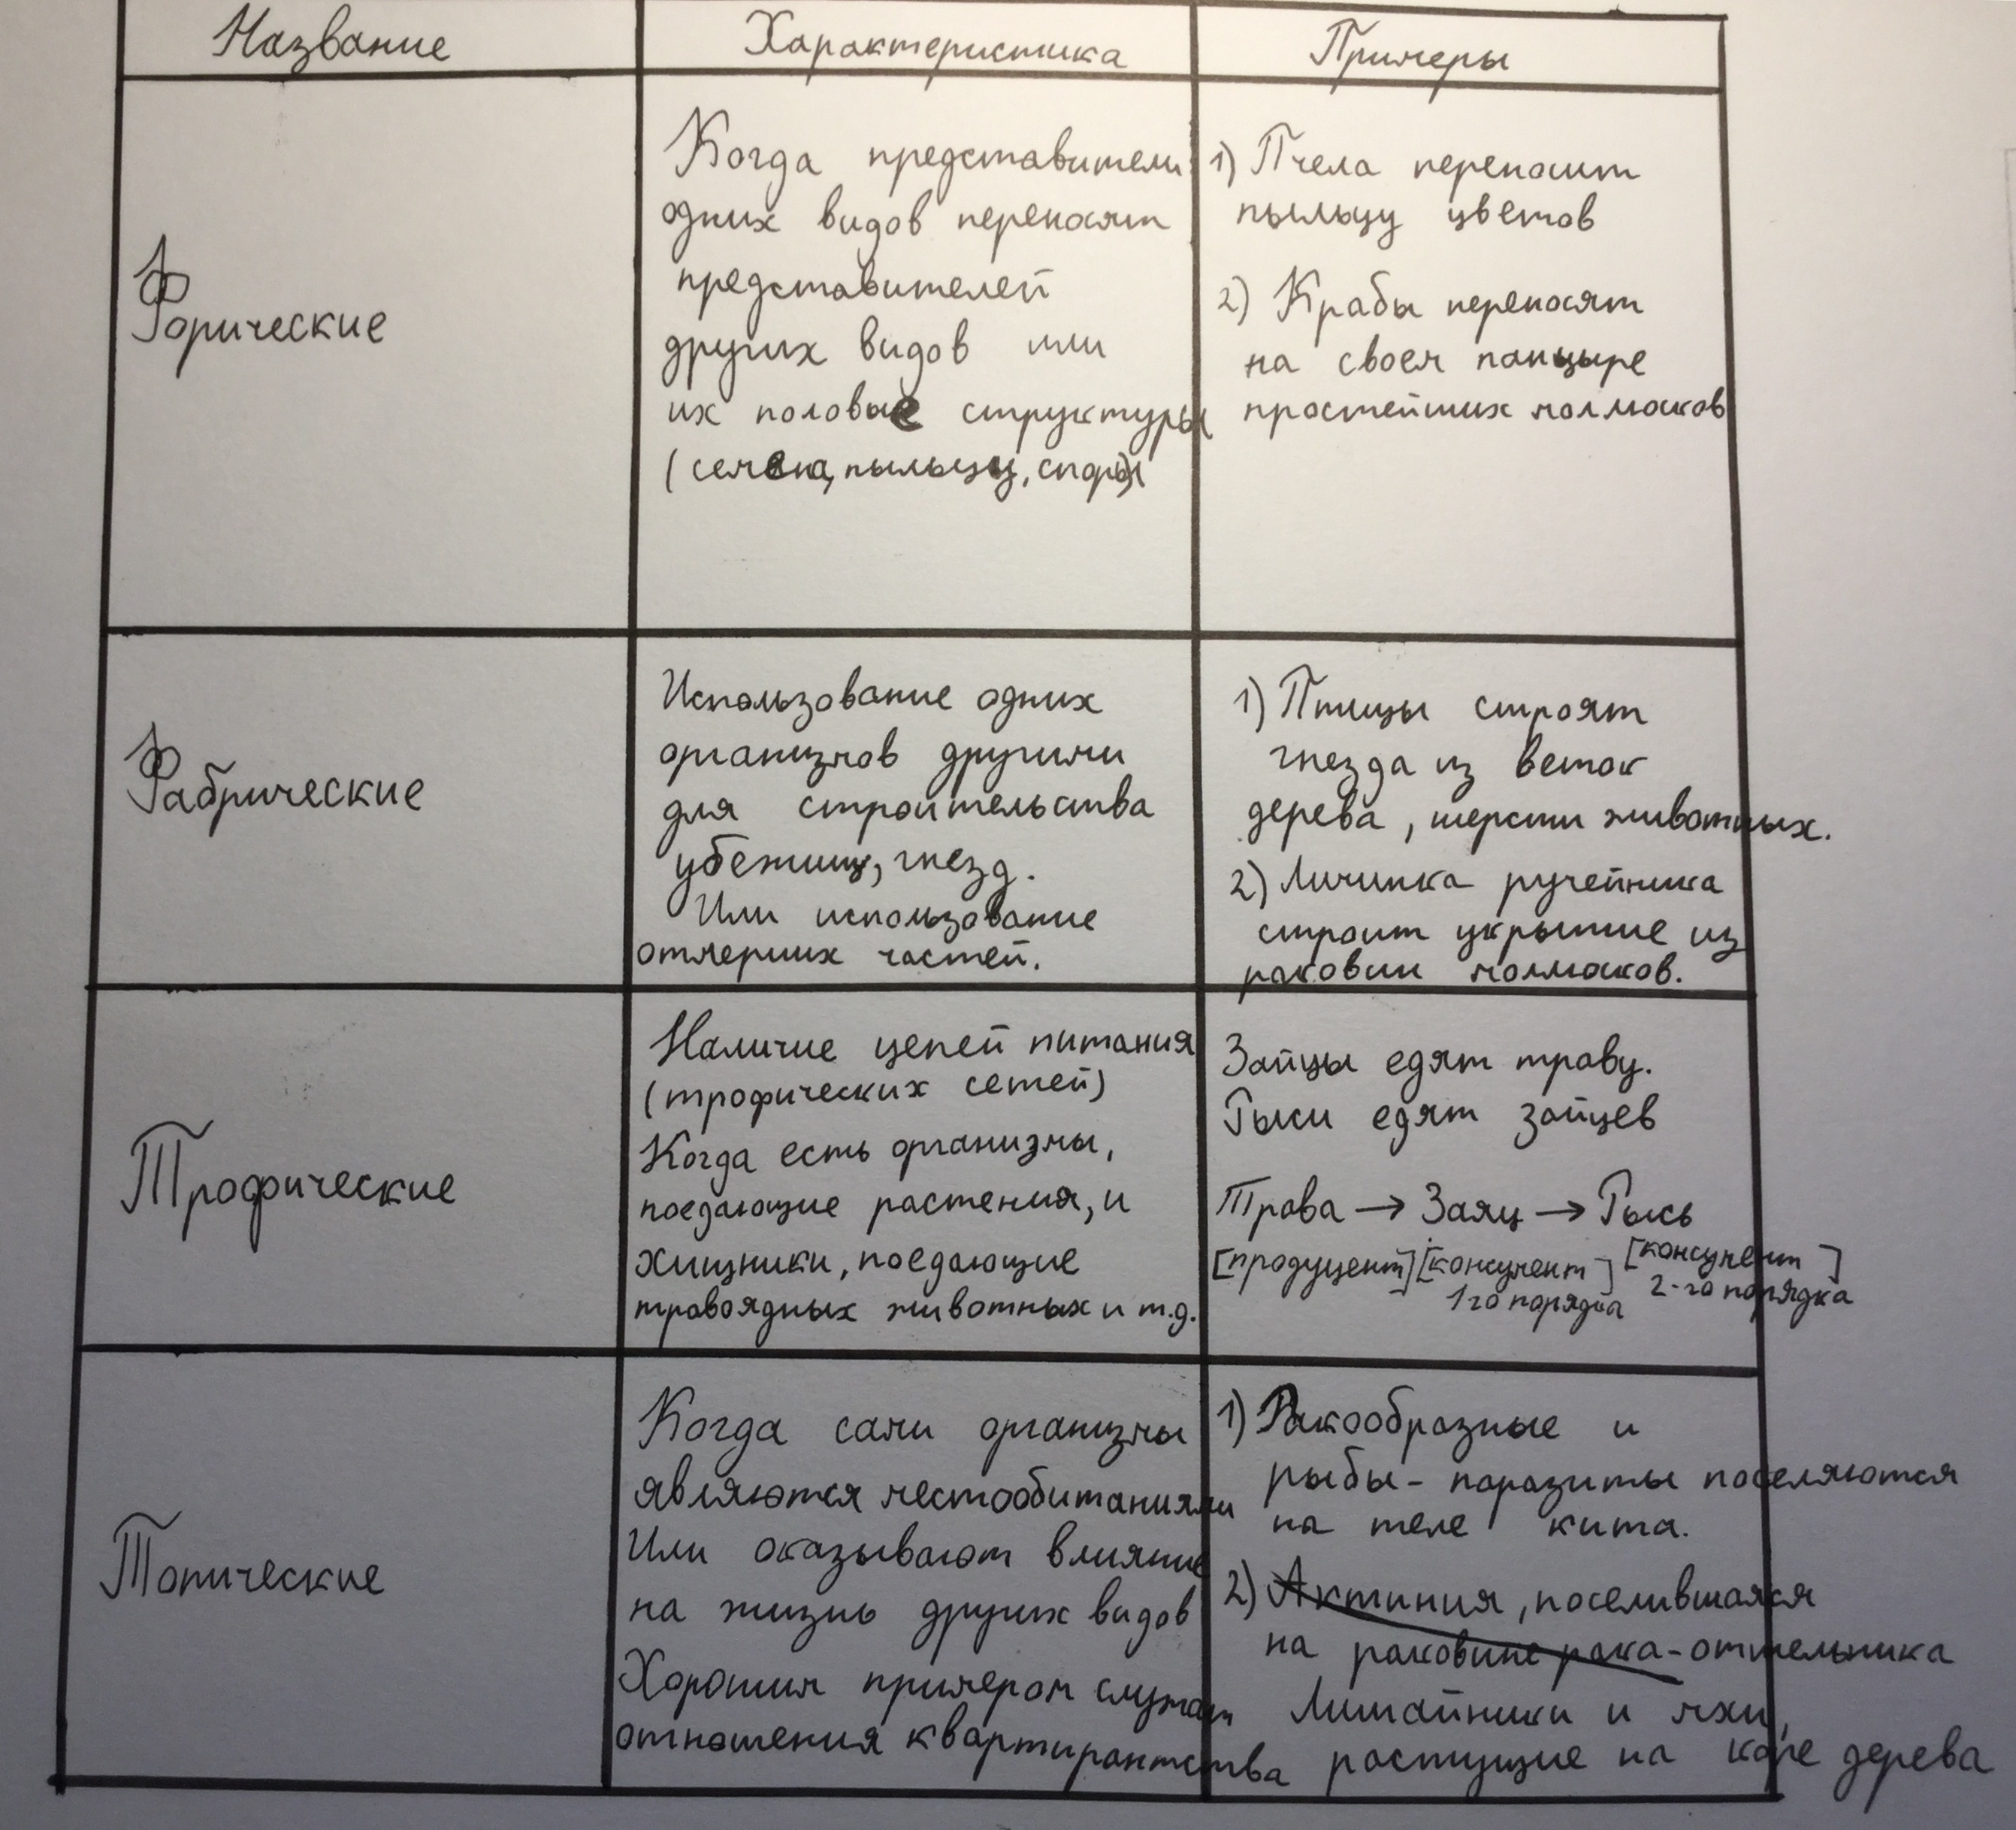 Название
Характеристика
Примеры
Форические
Когда представители
одних видов переносят
представителей
других видов или
их половые структуры
(семена, пыльцу, споры)
1) Пчела переносит
пыльцу цветов
2) Крабы переносят
на своем панцыре
простейших моллюсков
Фабрические
Использование одних
организмов другими
для строительства
убежищ, гнезд.
Или использование
отмерших частей.
1) Птицы строят
гнезда из веток
дерева, шерсти животных.
2) Личинка ручейника
строит укрытие из
раковин моллюсков.
Трофические
Наличие цепей питания
(трофических сетей)
Когда есть организмы,
поедающие растения, и
хищники, поедающие
травоядных животных и т.д.
Зайцы едят траву.
Рыси едят зайцев
Трава → Заяц → Рысь
[продуцент] [консумент 1го порядка] [консумент 2-го порядка]
Топические
Когда сами организмы
являются местообитаниями
Или оказывают влияние
на жизнь других видов
Хорошим примером служат
отношения квартирантства
1) Ракообразные и
рыбы-паразиты поселяются
на теле кита.
2) Актиния, поселившаяся
на раковине рака-отшельника
Лишайники и мхи,
растущие на коре дерева